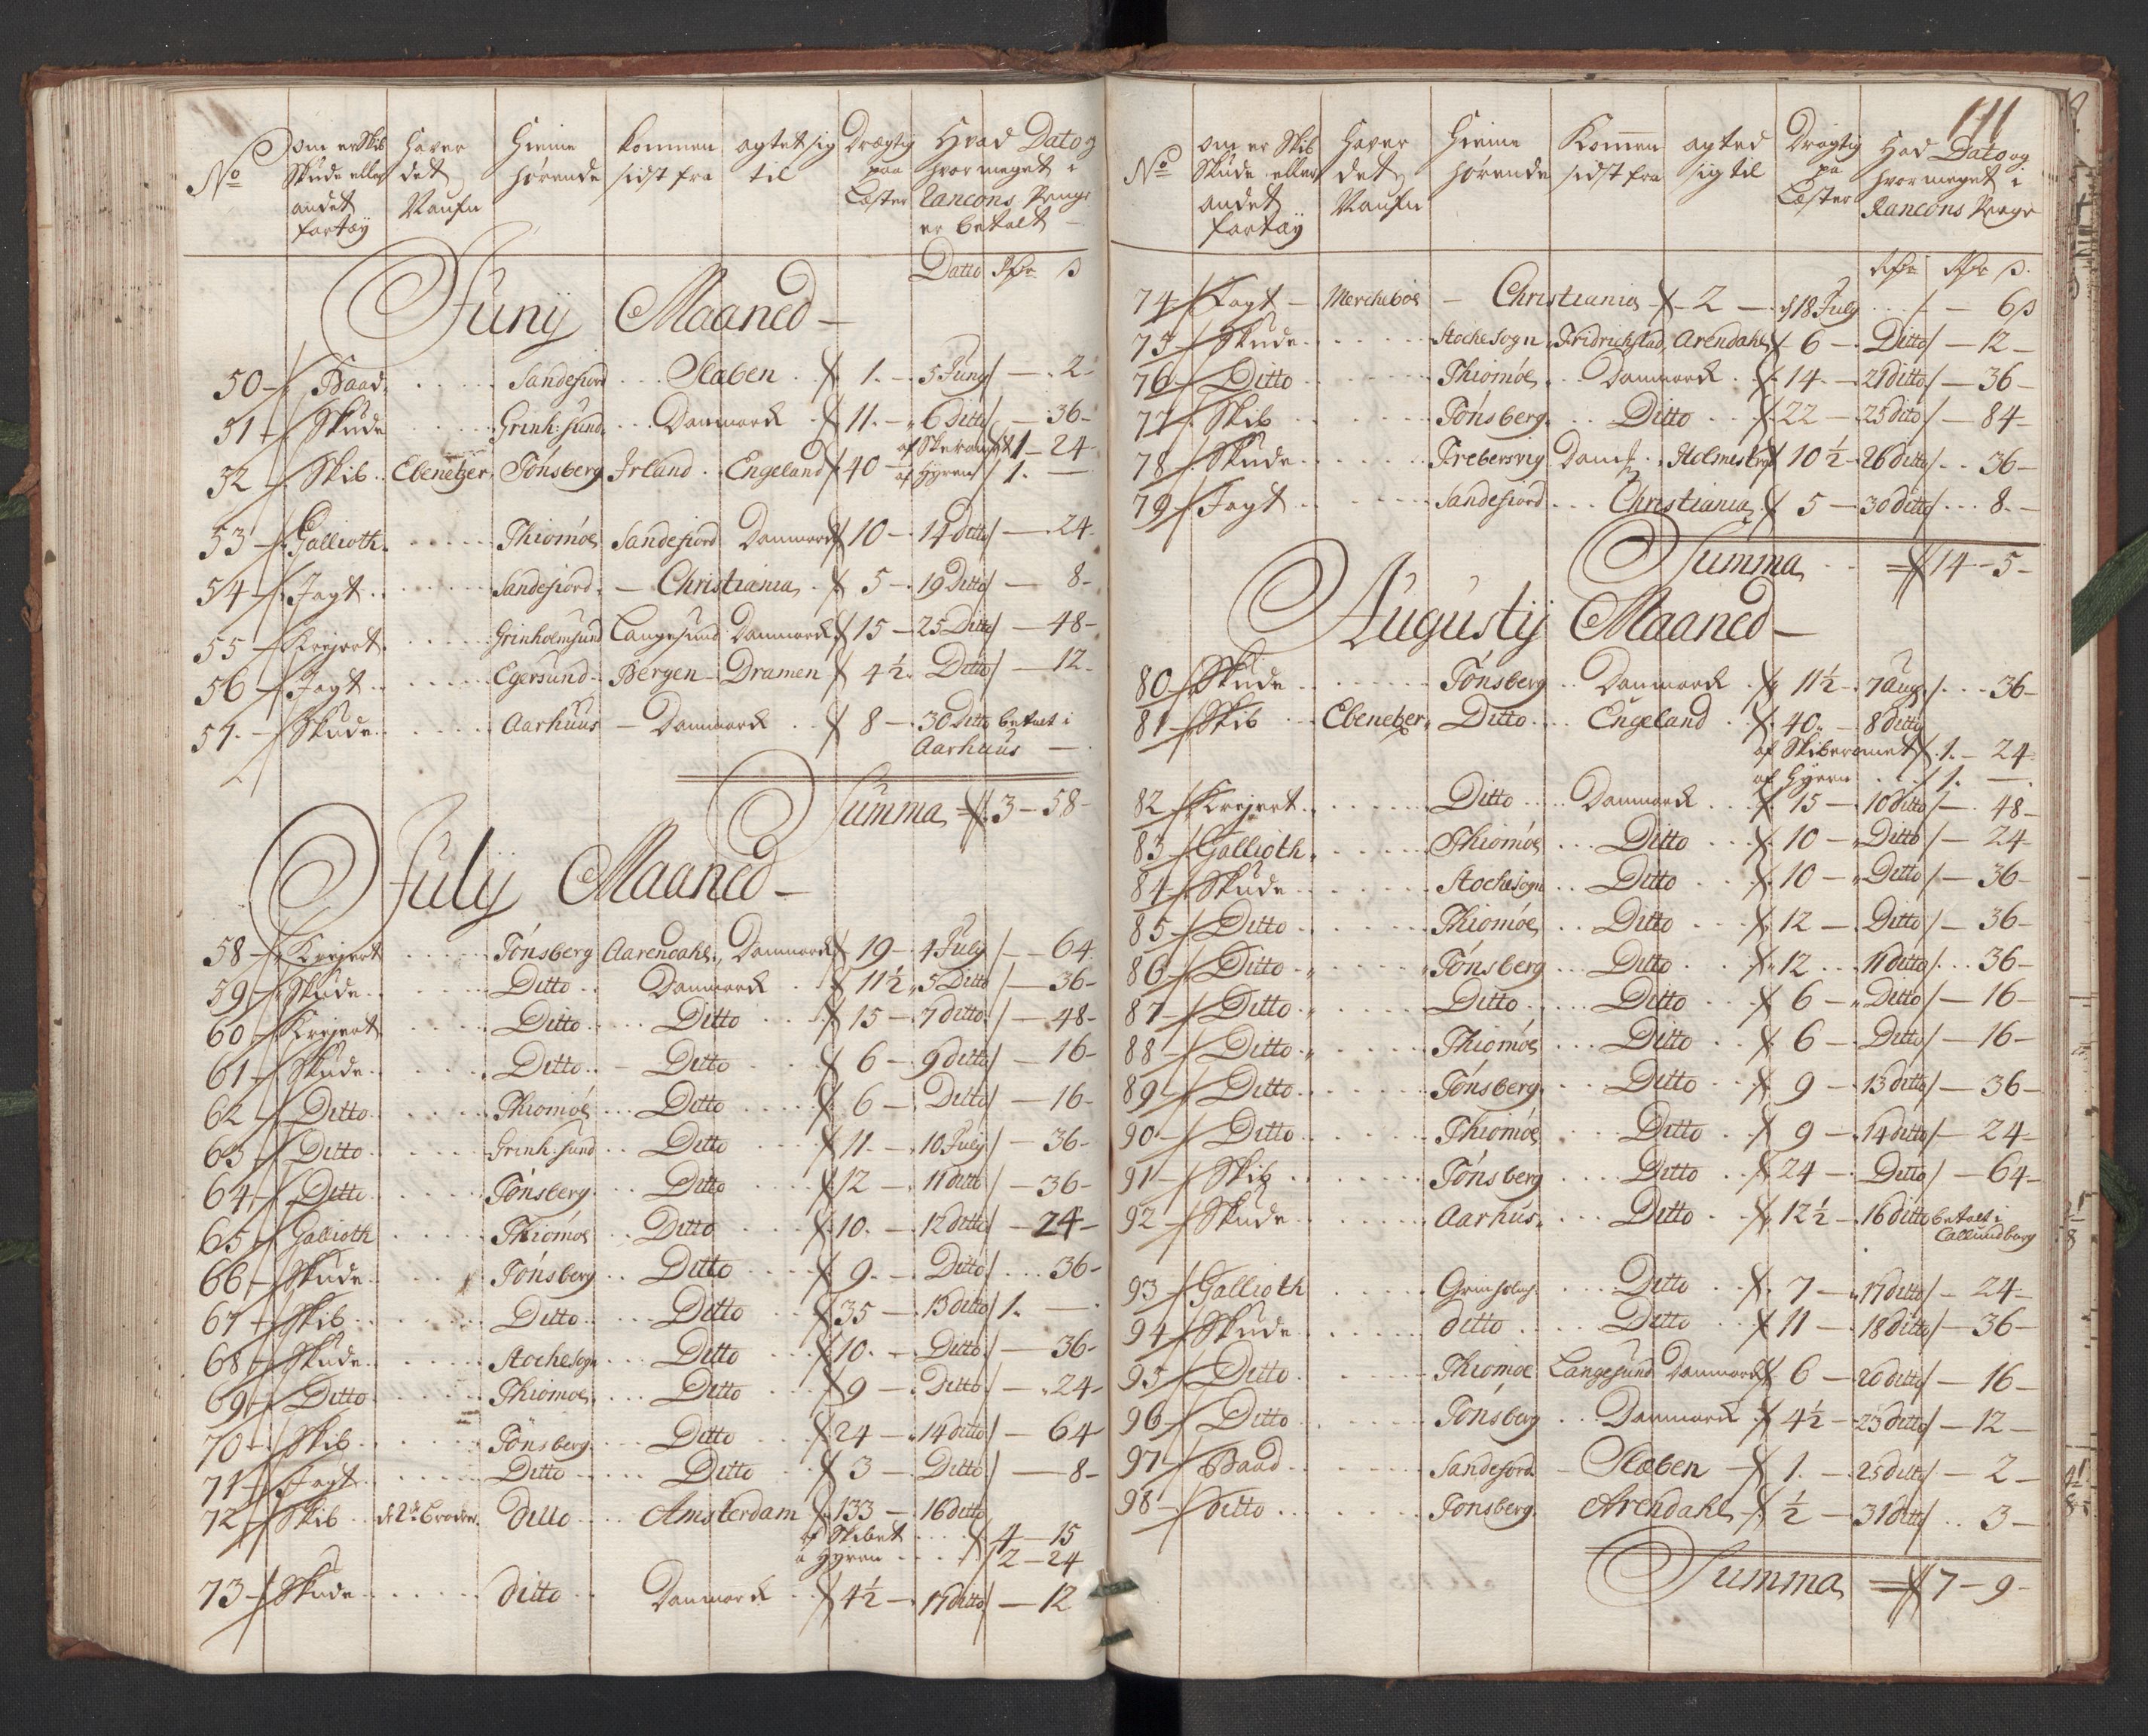 No | om er Skib Skude eller andet fartøy | haver det Naufn | Hieme hørende | kommen sidst fra | agtet sig til | Drægtig paa Læster | Hvad Dato og hvor meget i Rancons Penge er betalt
Datto Rdr ß
Junij Maaned
50 Baad Sandefiord Slaben 1. 5 Junij 2
51 Skude Grinh: sund Danmark 11. 6 Ditto 36
32 Skib Ebenetzer Tønsberg Irland Engeland 40 af Skibrommet 1 24
af Hyren 1.
53 Gallioth Thiomøe Sandefiord Danmark 10 14 Ditto 24
54 Jagt Sandefiord Christiania 5 19 Ditto 8
55 Krejert Grinholmsund Langesund Danmark 15 25 Ditto 48
56 Jagt Egersund Bergen Dramen 4½ Ditto 12
57 Skude Aarhuus Danmark 8 30 Ditto betalt i
Aarhuus
Summa 3 - 58
Julij Maaned
58 Krejert Tønsberg Aarendahl Danmark 19 4 July 64
59 Skude Ditto Danmark 11½ 5 Ditto 36
60 Krejert Ditto Ditto 15 7 ditto 48
61 Skude Ditto Ditto 6 9 ditto 16
62 Ditto Thiomøe Ditto 6 Ditto 16
63 Ditto Grinh: sund Ditto 11. 10 July 36
64 Ditto Tønsberg Ditto 12 11 ditto 36
65 Gallioth Thiomøe Ditto 10. 12 ditto 24
66 Skude Tønsberg Ditto 9. Ditto 36
67 Skib Ditto Ditto 35 13 ditto 1.
68 Skude Stochesogn Ditto 10. Ditto 36
69 Ditto Thiomøe Ditto 9 Ditto 24
70 Skib Tønsberg Ditto 24 14 ditto 64
71 Jagt Ditto Ditto 3 Ditto 8
72 Skib de 2de Brødre Ditto Amsterdam 133 16 ditto
af Skibet 4 15
a Hyren 2 24
73 Skude ditto Danmark 4½ 17 ditto 12
111
No | om er Skib Skude eller andet fartøy | Haver det Naufn | Hieme hørende | Kommen sidst fra | agted sig til | Drægtig pa Læster | Had Dato og hvor meget i Rancons Penge
Rdr ß
74 Jagt Merchebøe Christiania 2 d 18 July 6ß
75 Skude Stochesogn Fridrichstad Arendahl 6 Ditto 12
76 Ditto Thiomøe Danmark 14 21 ditto 36
77 Skib Tønsberg Ditto 22 25 dito 84
78 Skude Trebersvig Danm: Holmestrand 10½ 26 ditto 36
79 Jagt Sandefiord Christiania 5 30 ditto 8
Summa 14 - 5
Augustij Maaned
80 Skude Tønsberg Danmark 11½ 7 Aug. 36
81 Skib Ebenetzer Ditto Engeland 40. 8 ditto
af Skiberomet 1. 24
af Hyren 1.
82 Krejert Ditto Danmark 15 10 ditto 48
83 Gallioth Thiomøe Ditto 10 Ditto 24
84 Skude Stochesogn Ditto 10 Ditto 36
85 Ditto Thiomøe Ditto 12 Ditto 36
86 Ditto Tønsberg Ditto 12 11 ditto 36
87 Ditto Ditto Ditto 6 Ditto 16
88 Ditto Thiomøe Ditto 6 Ditto 16
89 Ditto Tønsberg Ditto 9 13 ditto 36
90 Ditto Thiomøe Ditto 9 14 ditto 24
91 Skib Tønsberg Ditto 24 Ditto 64
92 Skude Aarhus Ditto 12½ 16 ditto betalt i
Callundborg
93 Gallioth Grinholms Ditto 7 17 ditto 24
94 Skude ditto Ditto 11 18 ditto 36
95 Ditto Thiomøe Langesund Danmark 6 20 ditto 16
96 Ditto Tønsberg Danmark 4½ 23 ditto 12
97 Baad Sandefiord Slæben 1. 25 ditto 2
98 ditto Tønsberg Arendahl ½ 31 ditto 3
Summa 7 - 9